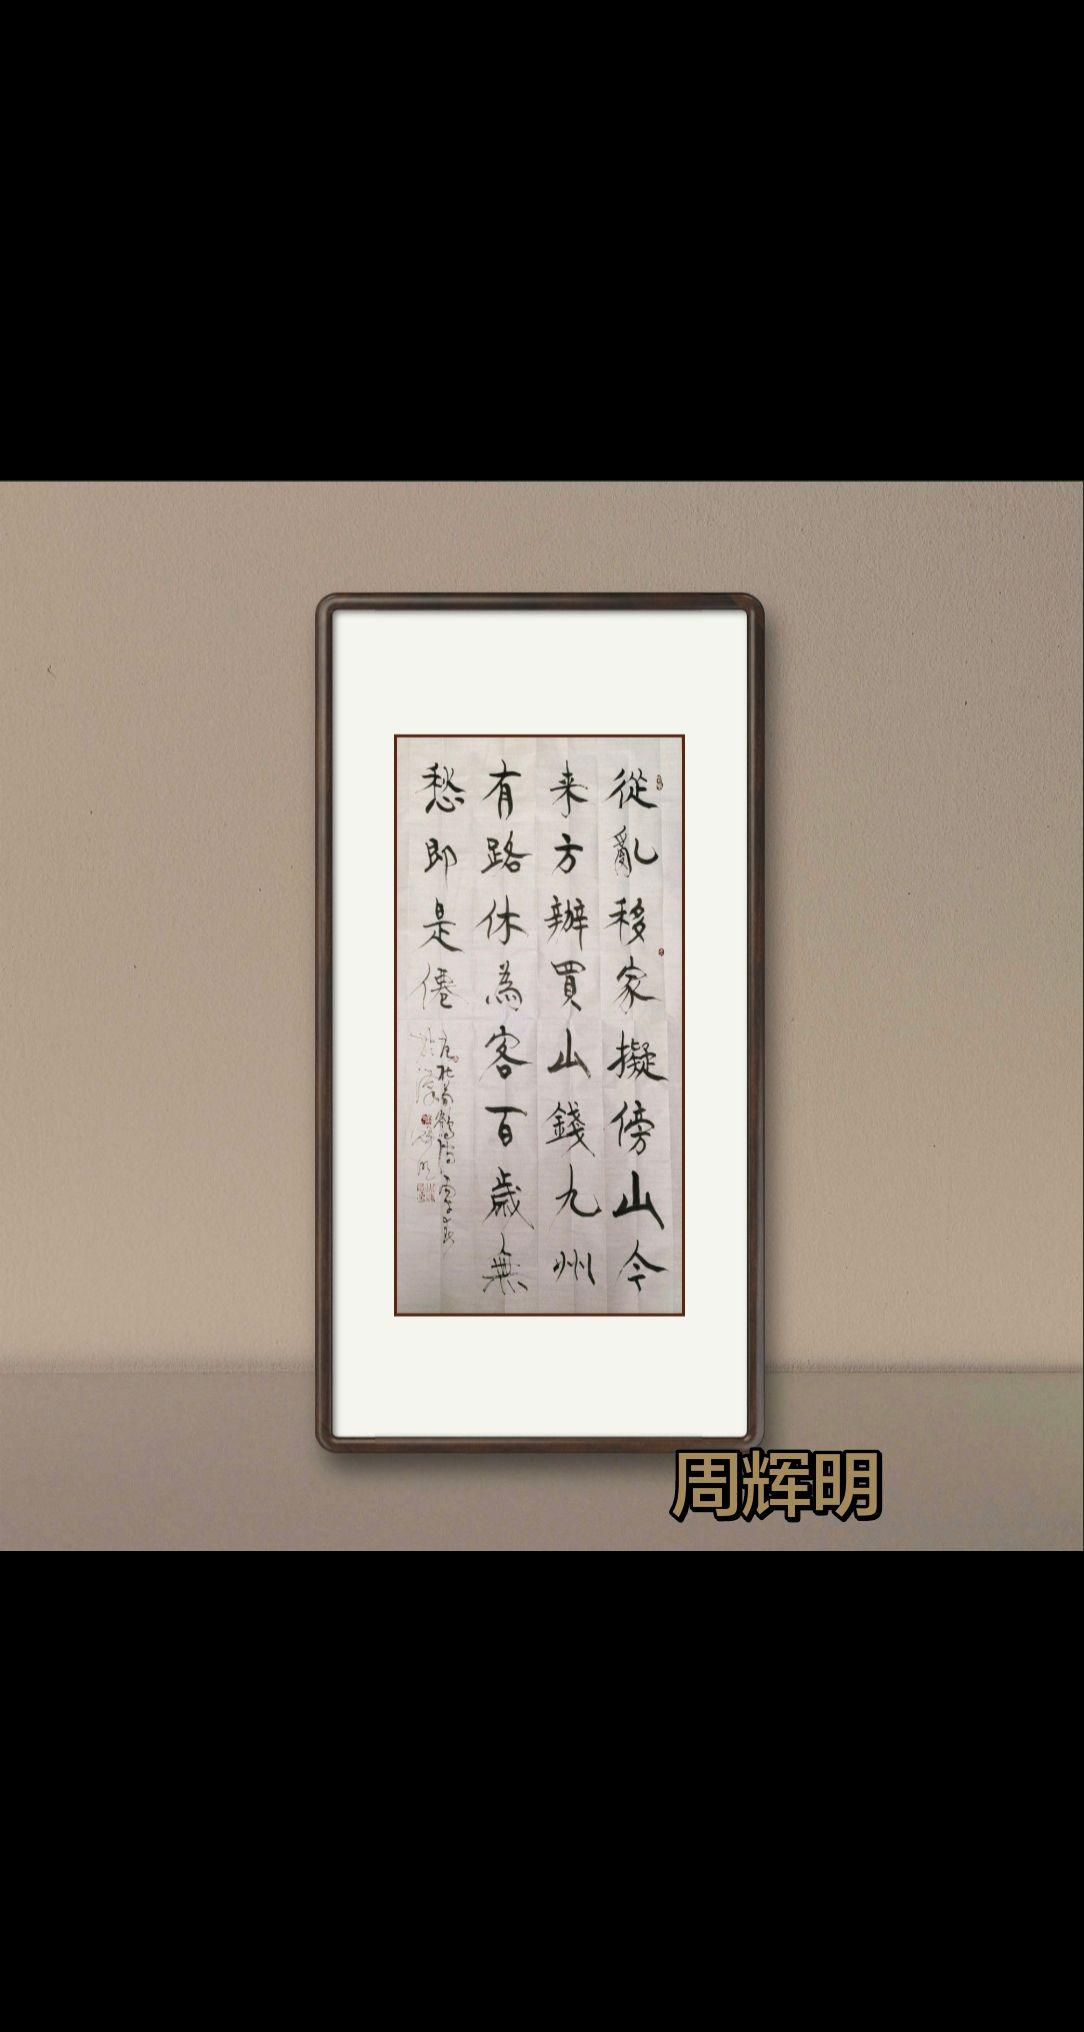 從亂移家擬傍山今
来方辦買山錢九州
有路休為客百歲無
愁即是僊
周辉明